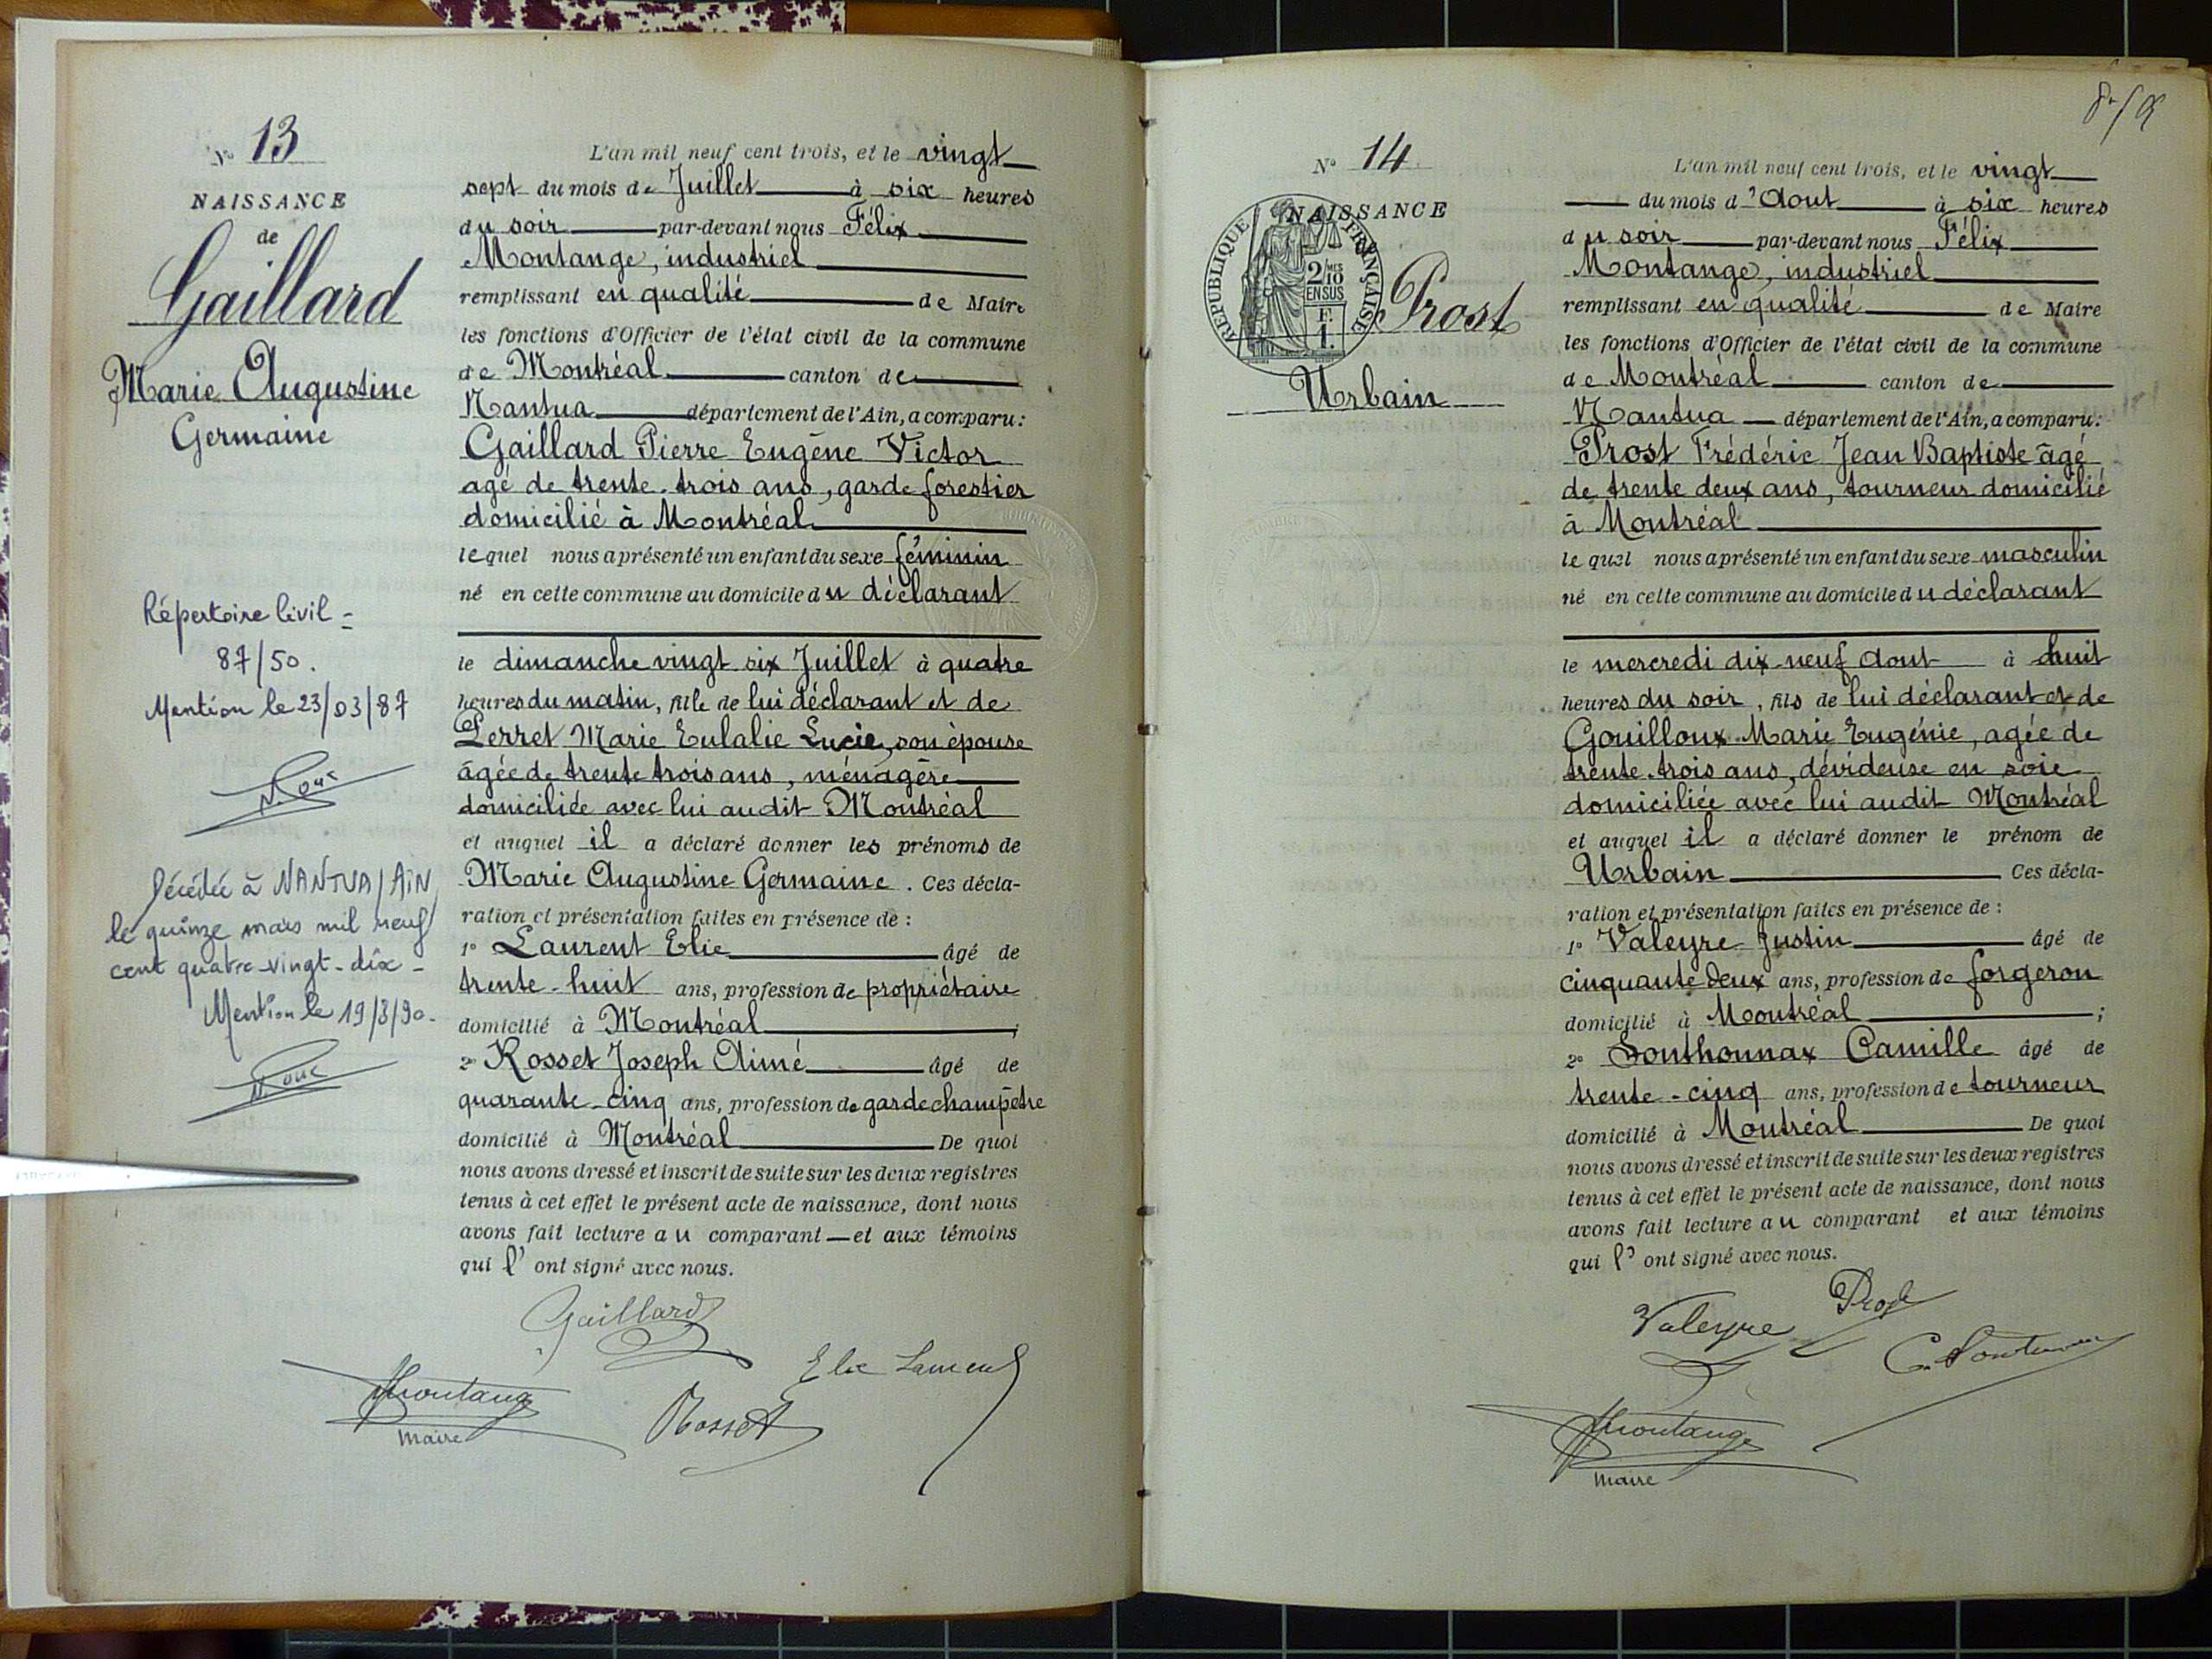 N° 13
NAISSANCE
de
Gaillard
Marie Augustine
Germaine
Répertoire Civil =
87/50.
Mention le 23/03/87
Décédée à NANTUA / AIN
le quinze mars mil neuf
cent quatre-vingt-dix -
Mention le 19/3/90.
L'an mil neuf cent trois, et le vingt
sept du mois de Juillet à six heures
du soir par-devant nous Félix
Montange, industriel
remplissant en qualité de Maire
les fonctions d'Officier de l'état civil de la commune
de Montréal canton de
Nantua département de l'Ain, a comparu:
Gaillard Pierre Eugène Victor
agé de trente-trois ans, garde forestier
domicilié à Montréal
lequel nous a présenté un enfant du sexe féminin
né en cette commune au domicile du déclarant
le dimanche vingt six Juillet à quatre
heures du matin, fille de lui déclarant et de
Perret Marie Eulalie Lucie, son épouse
âgée de trente trois ans, ménagère
domiciliée avec lui audit Montréal
et auquel il a déclaré donner les prénoms de
Marie Augustine Germaine. Ces décla-
ration et présentation faites en présence de :
1° Laurent Elie âgé de
trente-huit ans, profession de propriétaire
domicilié à Montréal ;
2° Rosset Joseph Aimé âgé de
quarante-cinq ans, profession de garde champêtre
domicilié à Montréal De quoi
nous avons dressé et inscrit de suite sur les deux registres
tenus à cet effet le présent acte de naissance, dont nous
avons fait lecture au comparant et aux témoins
qui l'ont signé avec nous.
Gaillard
Elie Laurent
Montange
Rosset
Maire
N° 14
NAISSANCE
RÉPUBLIQUE FRANÇAISE
2/10 MES
EN SUS
F.
1.
Prost
Urbain
L'an mil neuf cent trois, et le vingt
du mois d'Aout à six heures
du soir par-devant nous Félix
Montange, industriel
remplissant en qualité de Maire
les fonctions d'Officier de l'état civil de la commune
de Montréal canton de
Nantua département de l'Ain, a comparu:
Prost Frédéric Jean Baptiste âgé
de trente deux ans, tourneur domicilié
à Montréal
lequel nous a présenté un enfant du sexe masculin
né en cette commune au domicile du déclarant
le mercredi dix-neuf Aout à huit
heures du soir, fils de lui déclarant et de
Gouilloux Marie Eugénie, agée de
trente-trois ans, dévideuse en soie
domiciliée avec lui audit Montréal
et auquel il a déclaré donner le prénom de
Urbain Ces décla-
ration et présentation faites en présence de :
1° Valeyre Justin âgé de
cinquante deux ans, profession de forgeron
domicilié à Montréal ;
2° Sonthonnax Camille âgé de
trente-cinq ans, profession de tourneur
domicilié à Montréal De quoi
nous avons dressé et inscrit de suite sur les deux registres
tenus à cet effet le présent acte de naissance, dont nous
avons fait lecture au comparant et aux témoins
qui l'ont signé avec nous.
Prost
Valeyre
Montange
Maire